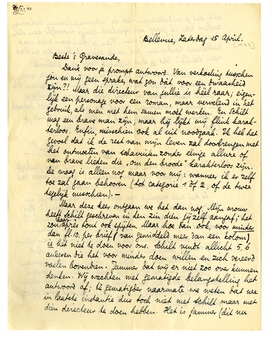 Bellevue, Zaterdag 15 April.
Beste 's Gravesande,
Dank voor je prompt antwoord. Van verhooring tusschen
jou en mij geen sprake, wat zou dat voor een dwaasheid
zijn?! Maar die directeur van jullie is heel raar; eigen-
lijk een personage voor een roman, maar vervelend in het
gebruik, als men met hem samen moet werken. En Schilt
mag een brave man zijn, maar hij lijkt mij flink karak-
terloos. Enfin, misschien ook al uit noodzaak. Ik heb het
gevoel dat ik de rest van mijn leven zal doorbrengen met
het ontmoeten van schavuiten zonder eenige allure of
van brave lieden die „om den broode” karakterloos zijn.
De vraag is alleen nog maar voor mij: wanneer ik er zelf
toe zal gaan behooren (tot categorie 1 of 2, of de twee
tegelijk misschien). —
Maar deze kees ontgaan we het dan nog. Mijn vrouw
heeft Schilt geschreven in den zin dien jij zelf aangaf: het
zou ons ook spijten, maar hoe dan ook, voor minder
dan fl. 10. per brief (van gemiddeld meer dan een kolom)
is het niet te doen voor ons. Schilt vindt allicht 5, 6
anderen die het voor minder doen willen en zich vereerd
voelen bovendien. Jammer dat wij er niet zoo over kunnen
denken. Wij wachten met gematigde belangstelling het
antwoord af; te gematigder naarmate we weten dat we
in laatste instantie dus toch niet met Schilt maar met
dien directeur te doen hebben. Het is jammer (dit nu